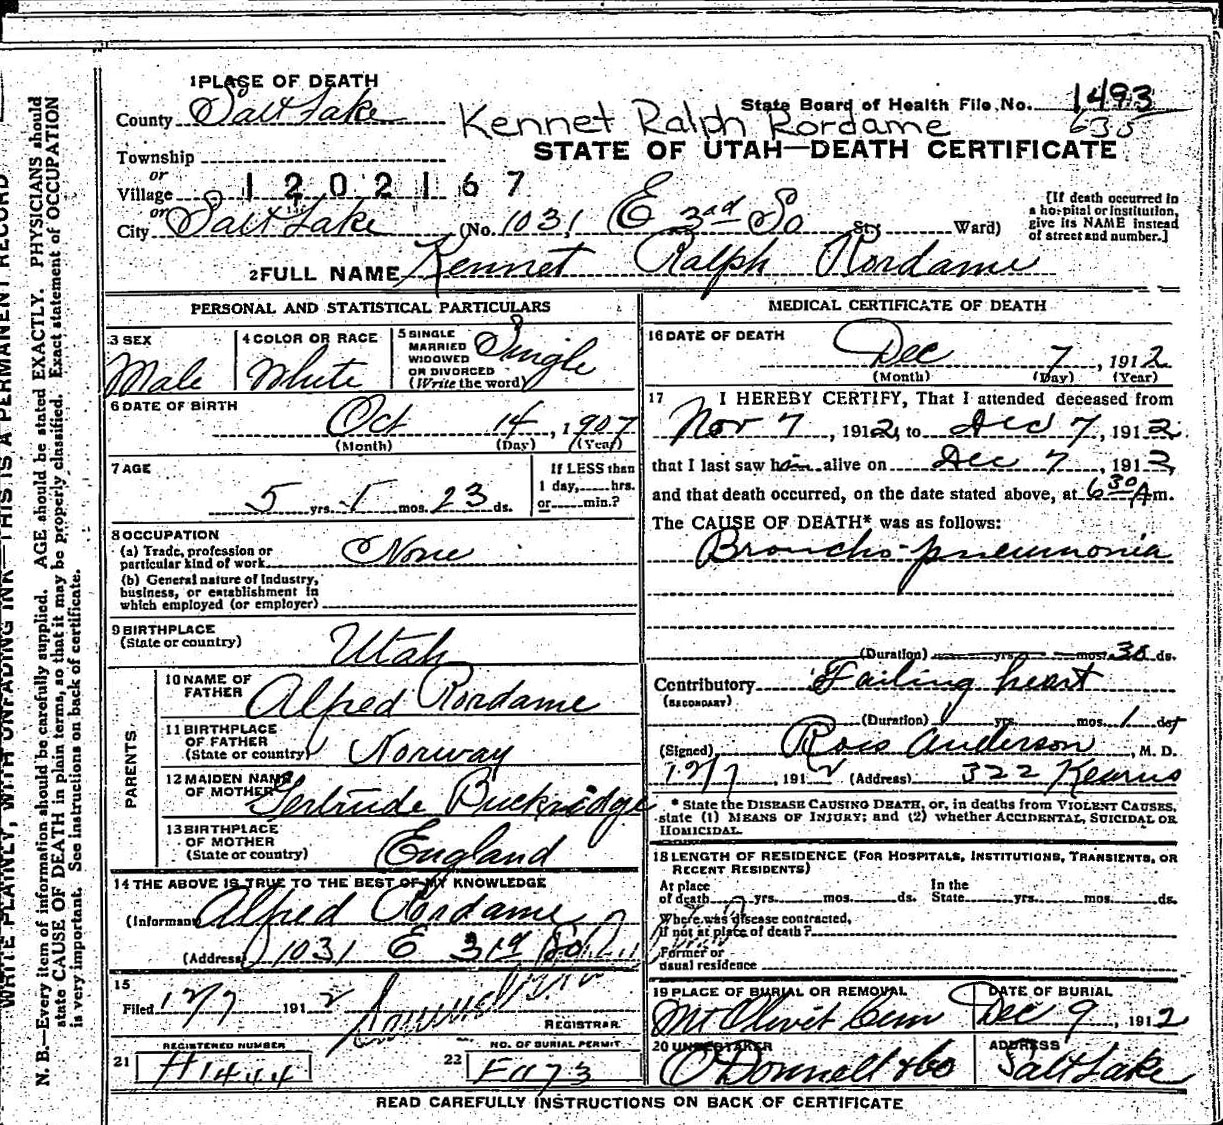 1 PLACE OF DEATH
County Salt Lake
State Board of Health File No. 1493
635
Kennet Ralph Rordame
STATE OF UTAH—DEATH CERTIFICATE
Township
or
Village
1202167
or
City Salt Lake (No. 1031 E 3rd So St; Ward)
[If death occurred in
a hospital or institution,
give its NAME instead
of street and number.]
2 FULL NAME Kennet Ralph Rordame
PERSONAL AND STATISTICAL PARTICULARS
3 SEX
Male
4 COLOR OR RACE
White
5 SINGLE
MARRIED
WIDOWED
OR DIVORCED
(Write the word)
Single
6 DATE OF BIRTH
Oct 14, 1907
(Month) (Day) (Year)
7 AGE
5 yrs. 1 mos. 23 ds.
If LESS than
1 day, hrs.
or min.?
8 OCCUPATION
(a) Trade, profession or
particular kind of work None
(b) General nature of Industry,
business, or establishment in
which employed (or employer)
9 BIRTHPLACE
(State or country) Utah
PARENTS
10 NAME OF
FATHER Alfred Rordame
11 BIRTHPLACE
OF FATHER
(State or country) Norway
12 MAIDEN NAME
OF MOTHER Gertrude Buckridge
13 BIRTHPLACE
OF MOTHER
(State or country) England
14 THE ABOVE IS TRUE TO THE BEST OF MY KNOWLEDGE
(Informant Alfred Rordame
(Address) 1031 E 3rd So
15
Filed 12/7 1912
REGISTRAR
REGISTERED NUMBER
21 H1444
NO. OF BURIAL PERMIT
22 F1173
MEDICAL CERTIFICATE OF DEATH
16 DATE OF DEATH
Dec 7, 1912
(Month) (Day) (Year)
17 I HEREBY CERTIFY, That I attended deceased from
Nov 7, 1912, to Dec 7, 1912
that I last saw him alive on Dec 7, 1912,
and that death occurred, on the date stated above, at 6 30 A m.
The CAUSE OF DEATH* was as follows:
Broncho-pneumonia
(Duration) yrs. mos. 30 ds.
Contributory Failing heart
(SECONDARY)
(Duration) yrs. mos. 1 ds.
(Signed) Ross Anderson, M. D.
12/7, 1912 (Address) 322 Kearns
* State the DISEASE CAUSING DEATH, or, in deaths from VIOLENT CAUSES,
state (1) MEANS OF INJURY; and (2) whether ACCIDENTAL, SUICIDAL OR
HOMICIDAL.
18 LENGTH OF RESIDENCE (FOR HOSPITALS, INSTITUTIONS, TRANSIENTS, OR
RECENT RESIDENTS)
At place
of death yrs. mos. ds.
In the
State yrs. mos. ds.
Where was disease contracted,
if not at place of death?
Former or
usual residence
19 PLACE OF BURIAL OR REMOVAL
Mt Olivet Cem
DATE OF BURIAL
Dec 9, 1912
20 UNDERTAKER
O'Donnell & Co
ADDRESS
Salt Lake
READ CAREFULLY INSTRUCTIONS ON BACK OF CERTIFICATE
WRITE PLAINLY, WITH UNFADING INK—THIS IS A PERMANENT RECORD
N. B.—Every item of information should be carefully supplied. AGE should be stated EXACTLY. PHYSICIANS should
state CAUSE OF DEATH in plain terms, so that it may be properly classified. Exact statement of OCCUPATION
is very important. See instructions on back of certificate.